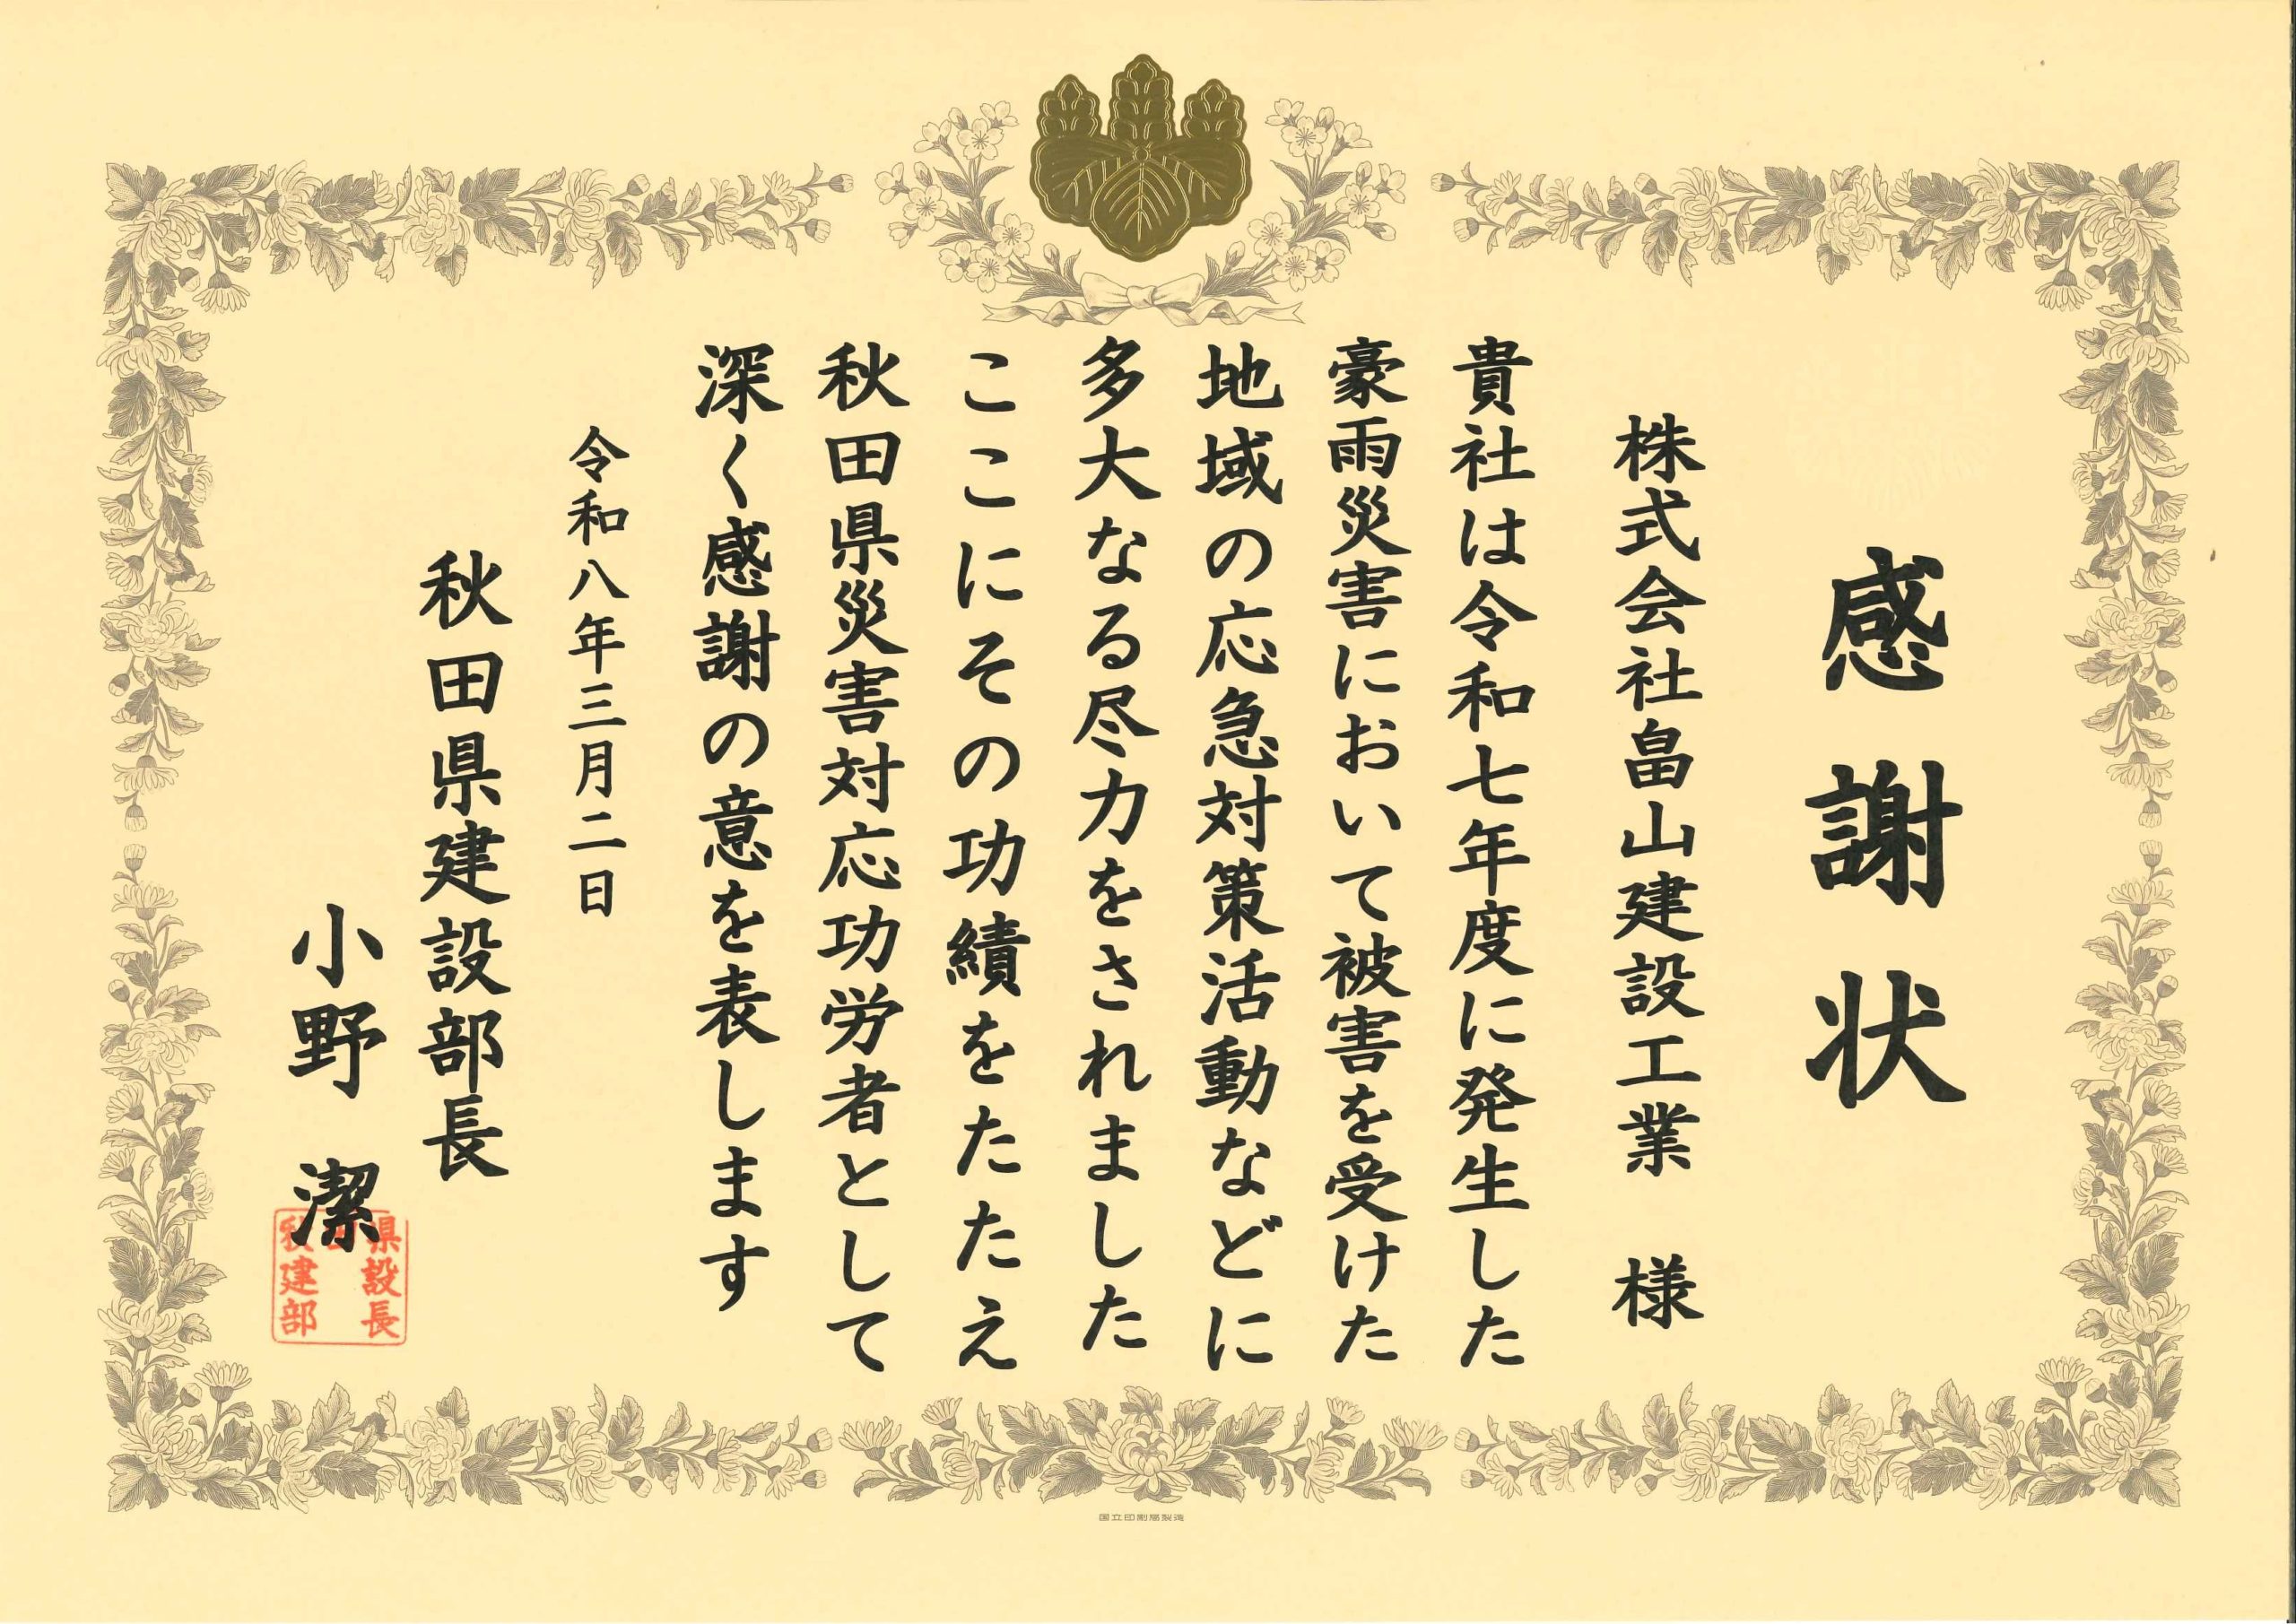 感謝状
株式会社畠山建設工業 様
貴社は令和七年度に発生した
豪雨災害において被害を受けた
地域の応急対策活動などに
多大なる尽力をされました
ここにその功績をたたえ
秋田県災害対応功労者として
深く感謝の意を表します
令和八年三月二日
秋田県建設部長
小野 潔
秋田県
建設
部長
国立印刷局製造